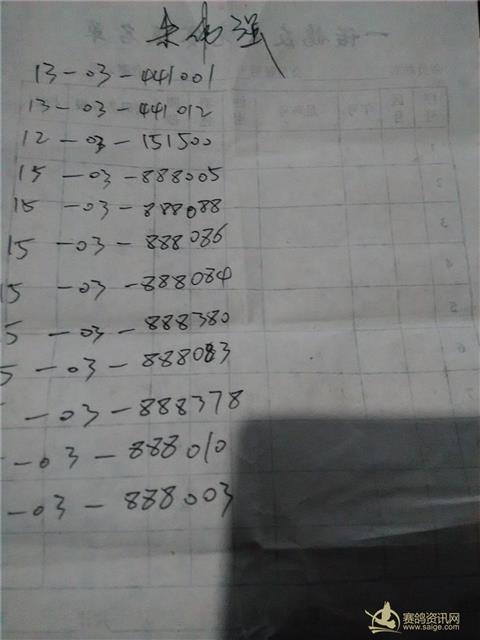 朱伟强
13-03-441001
13-03-441012
12-03-151500
15-03-888005
15-03-888088
15-03-888086
15-03-888084
5-03-888380
5-03-888083
-03-888378
-03-888010
-03-888003
赛鸽资讯网
www.saige.com